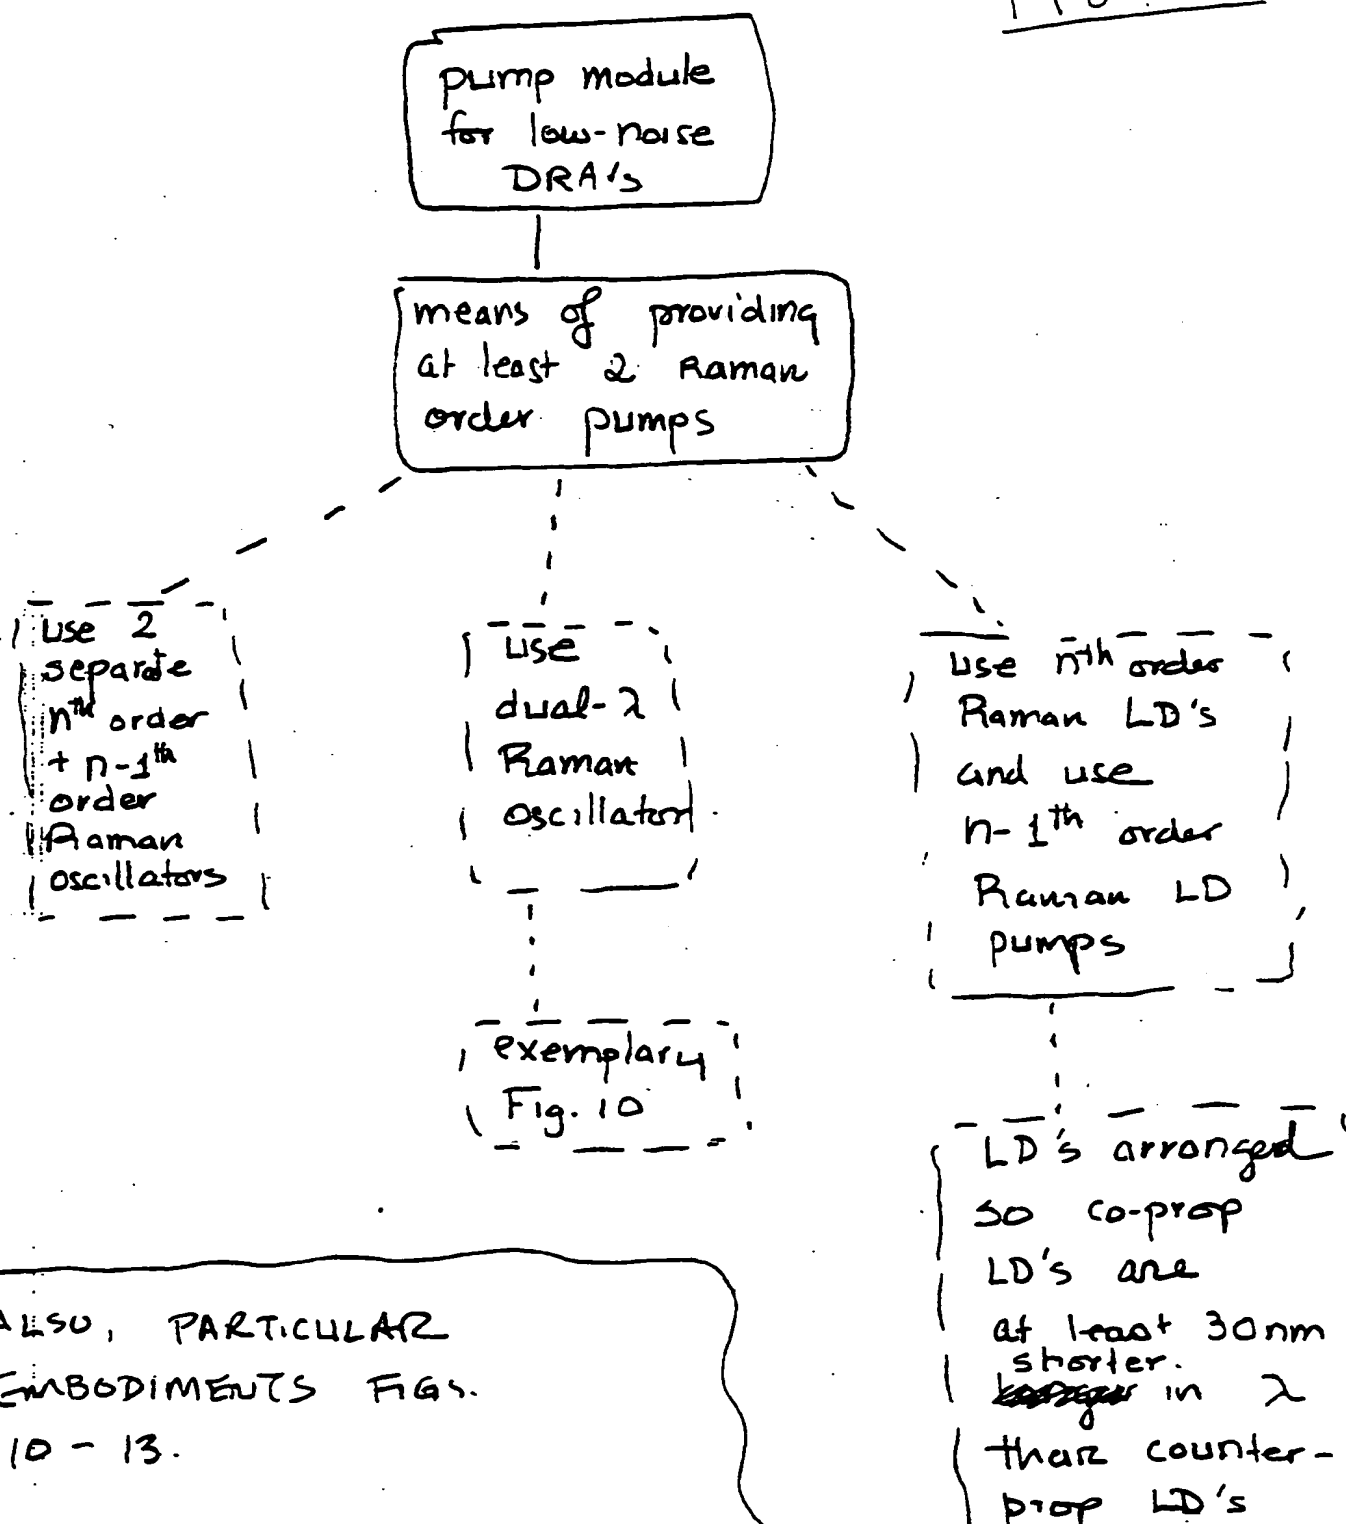 pump module
for low-noise
DRA's
means of providing
at least 2 Raman
order pumps
use 2
separate
nth order
+ n-1th
order
Raman
oscillators
use
dual-λ
Raman
oscillator
exemplary
Fig. 10
use nth order
Raman LD's
and use
n-1th order
Raman LD
pumps
LD's arranged
so co-prop
LD's are
at least 30nm
shorter.
in λ
than counter-
prop LD's
ALSO, PARTICULAR
EMBODIMENTS FIGS.
10 - 13.